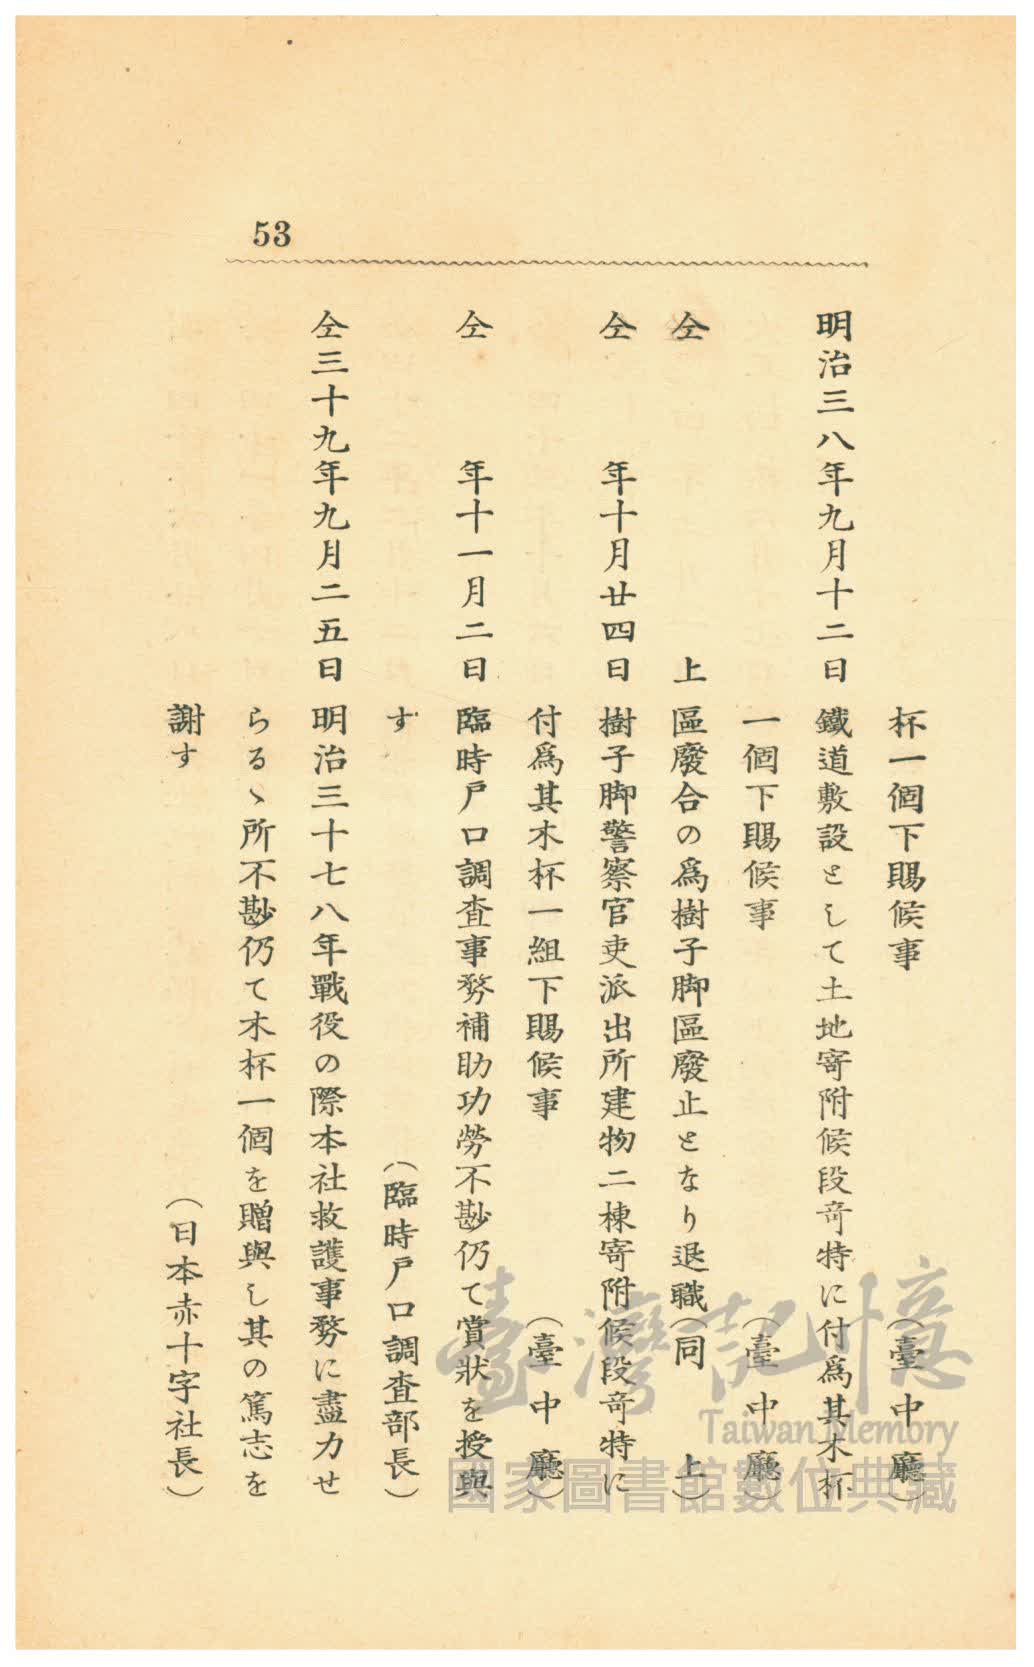 53
杯一個下賜候事（臺中廳）
明治三八年九月十二日 鐵道敷設として土地寄附候段奇特に付爲其木杯
一個下賜候事（臺中廳）
仝上 區廢合の爲樹子脚區廢止となり退職（同上）
仝年十月廿四日 樹子脚警察官吏派出所建物二棟寄附候段奇特に
付爲其木杯一組下賜候事（臺中廳）
仝年十一月二日 臨時戸口調査事務補助功勞不尠仍て賞狀を授與
す（臨時戸口調査部長）
仝三十九年九月二五日 明治三十七八年戰役の際本社救護事務に盡力せ
らるゝ所不尠仍て木杯一個を贈與し其の篤志を
謝す（日本赤十字社長）
臺灣記憶
Taiwan Memory
國家圖書館數位典藏